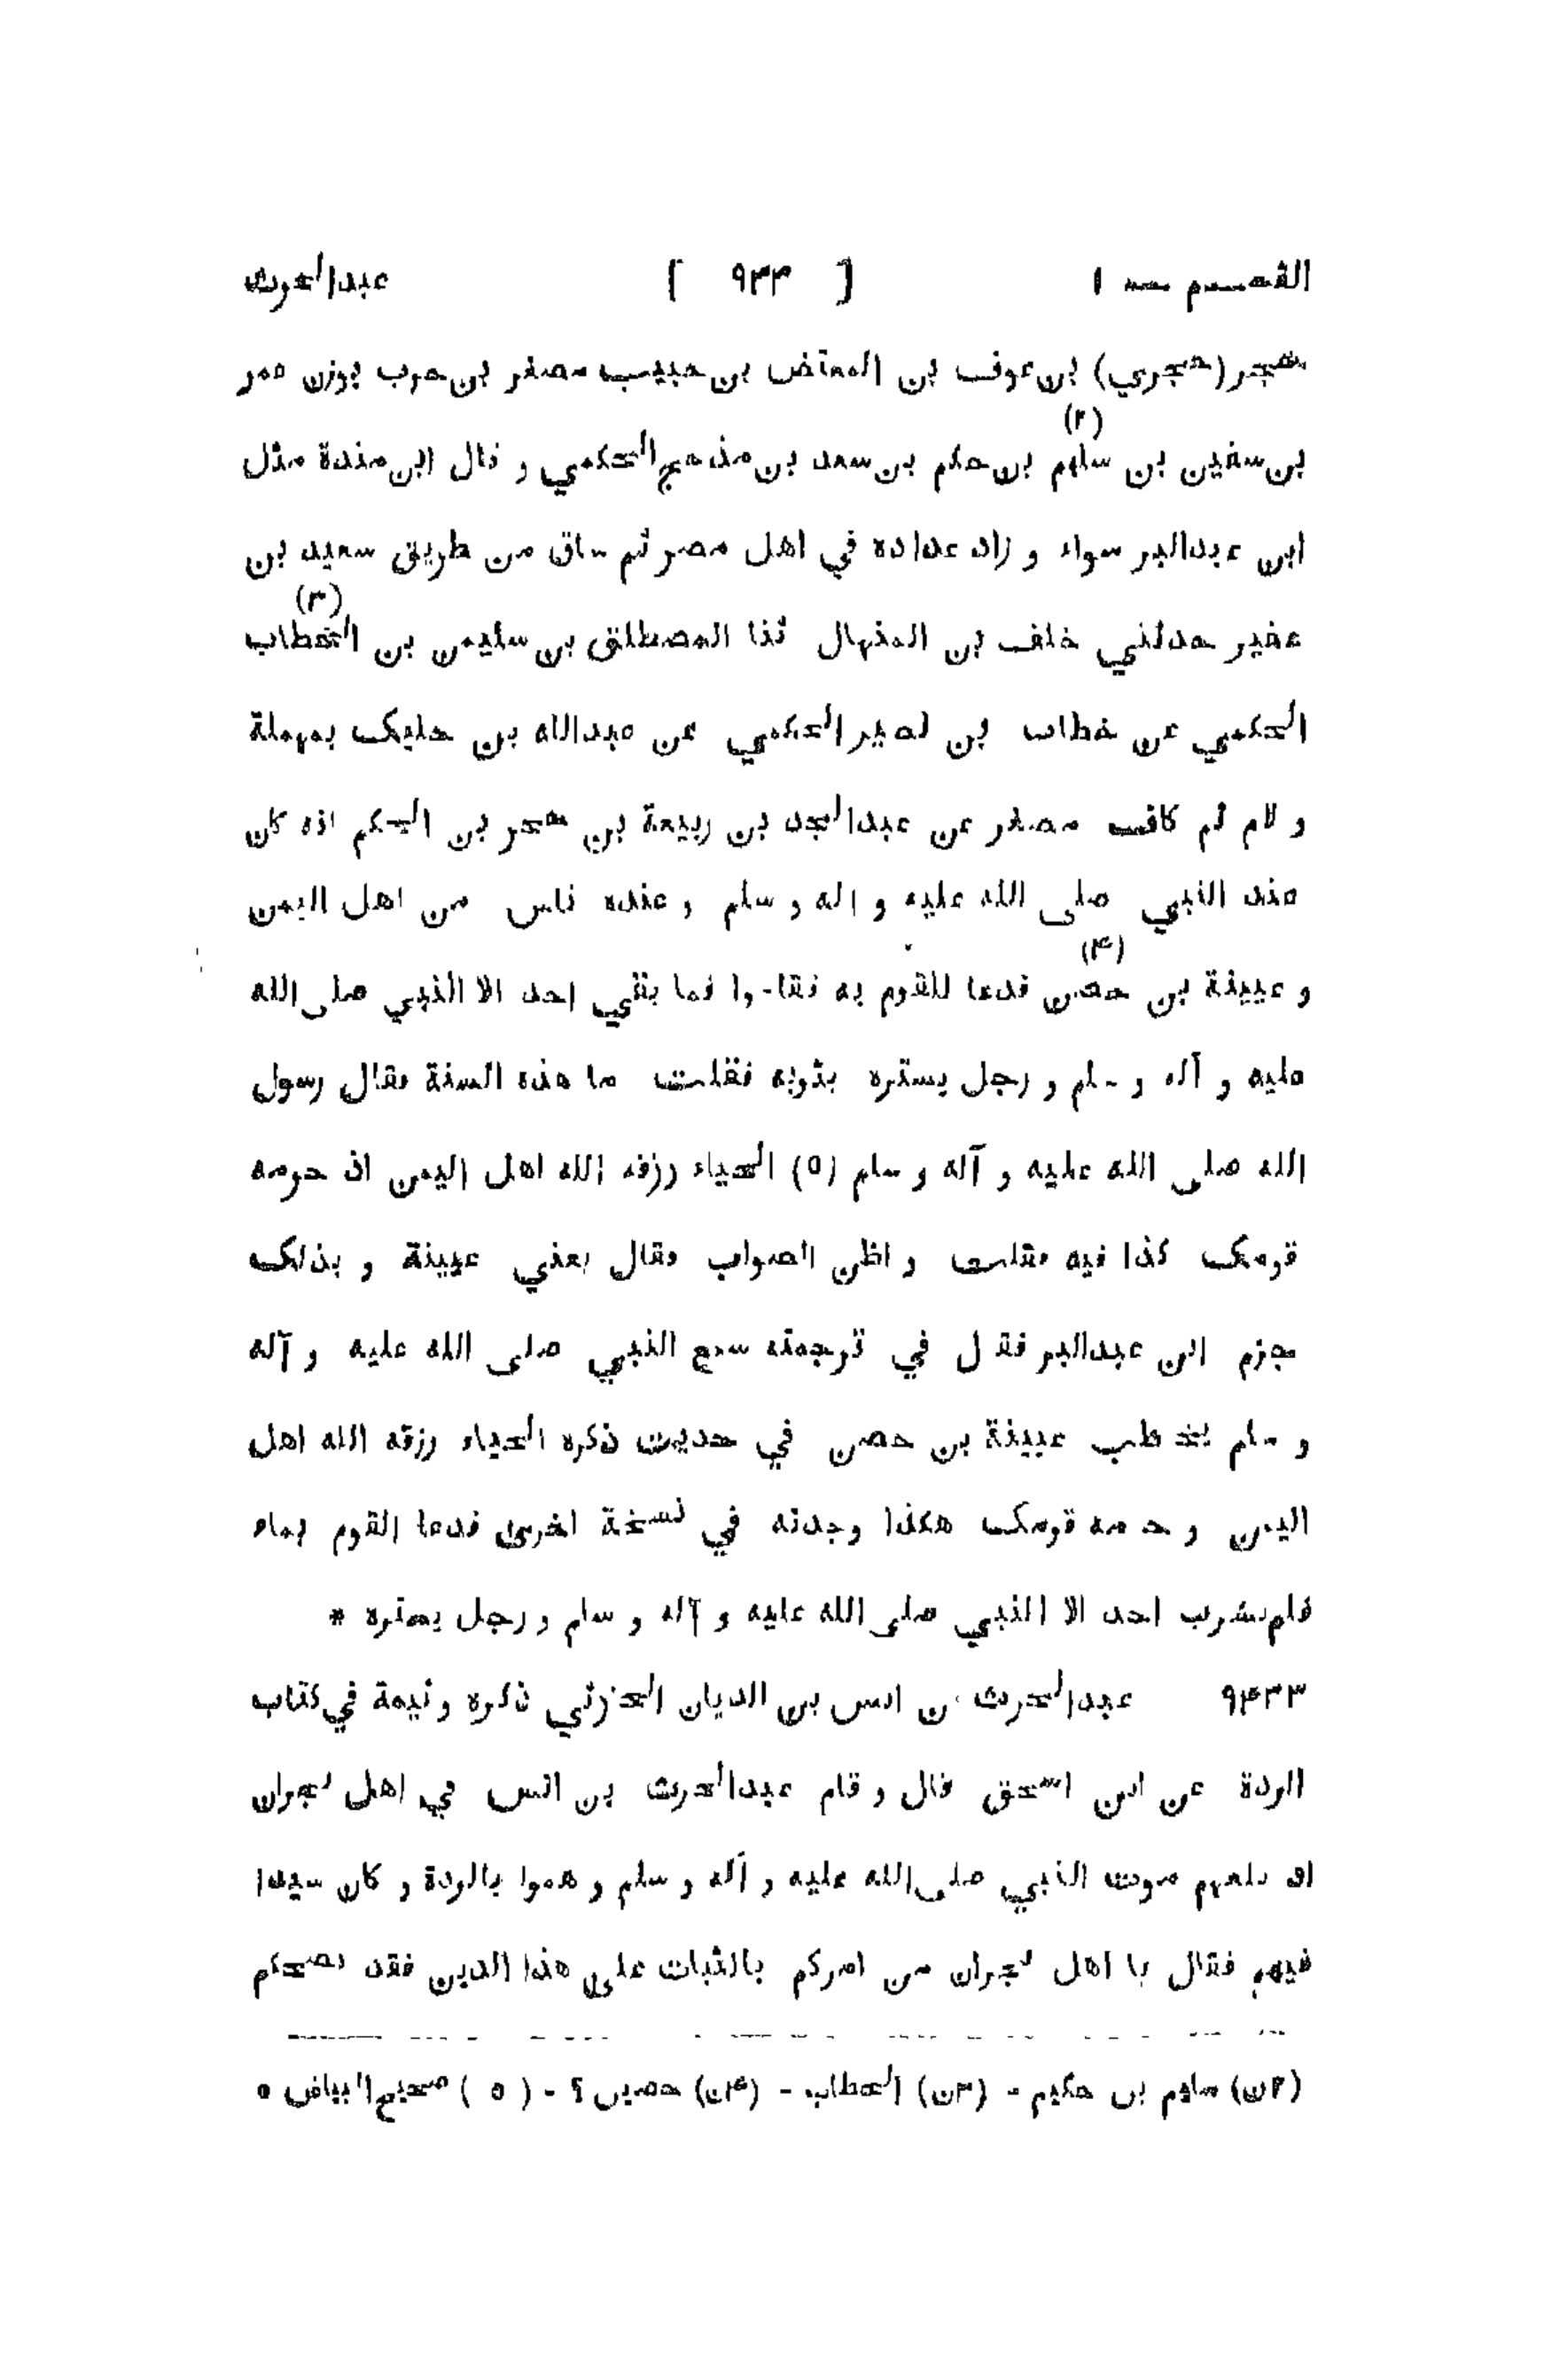 القسم — ١ [ ٩٣٣ ] عبدالحرث
حجر (حجري) بن عوف بن المعتض بن حبيب مصغر بن حرب بوزن عمر
بن سفين بن سلهم (٢) بن حكم بن سعد بن مذحج الحكمي و قال ابن مندة مثل
ابن عبدالبر سواء و زاد عداده في اهل مصر ثم ساق من طريق سعيد بن
عفير حدثني خلف بن المنهال ثنا المصطلق بن سليمن بن الخطاب (٣)
الحكمي عن خطاب بن نصير الحكمي عن عبدالله بن حليک بمهملة
و لام ثم كاف مصغر عن عبدالجد بن ربيعة بن حجر بن الحكم انه كان
عند النبي صلى الله عليه و اله و سلم و عنده ناس من اهل اليمن
و عيينة بن حصن (۴) فدعا للقوم به فقاموا فما بقي احد الا النبي صلى الله
عليه و آله و سلم و رجل يستره بثوبه فقلت ما هذه السنة فقال رسول
الله صلى الله عليه و آله و سلم (٥) الحياء رزقه الله اهل اليمن اذ حرمه
قومک كذا فيه فقلت و اظن الصواب فقال يعني عيينة و بذلک
جزم ابن عبدالبر فقال في ترجمته سمع النبي صلى الله عليه و آله
و سلم يخطب عيينة بن حصن في حديث ذكره الحياء رزقه الله اهل
اليمن و حرمه قومک هكذا وجدته في نسخة اخرى فدعا القوم بماء
فلم يشرب احد الا النبي صلى الله عليه و آله و سلم و رجل يستره *
٩۴٣٣ عبدالحرث بن انس بن الديان الحارثي ذكره وثيمة في كتاب
الردة عن ابن اسحق قال و قام عبدالحرث بن انس في اهل نجران
اذ بلغهم موت النبي صلى الله عليه و آله و سلم و هموا بالردة و كان سيدا
فيهم فقال يا اهل نجران من امركم بالثبات على هذا الدين فقد نصحكم
(٢ن) سلهم بن حكيم - (٣ن) الحطاب - (۴ن) حصين ؟ - ( ٥ ) صحيح البياض ٥